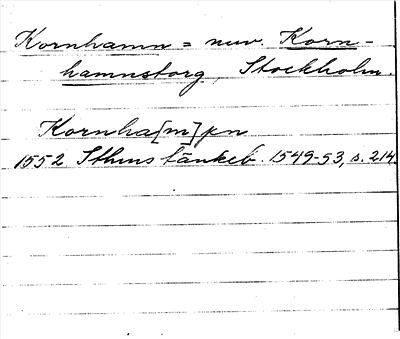 Kornhamn = nuv. Korn-
hamnstorg, Stockholm.
Kornha[m]pn
1552 Sthms tänkeb. 1549-53, s. 214